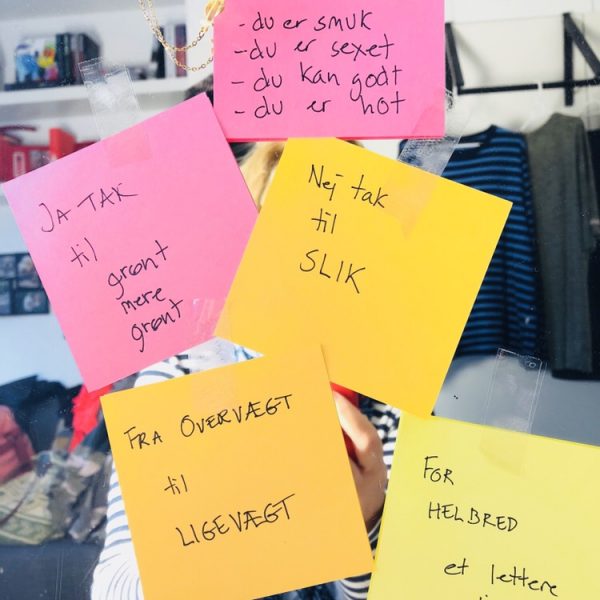 - du er smuk
- du er sexet
- du kan godt
- du er hot
JA TAK
til
grønt
mere
grønt
Nej tak
til
SLIK
FRA OVERVÆGT
til
LIGEVÆGT
FOR
HELBRED
et lettere